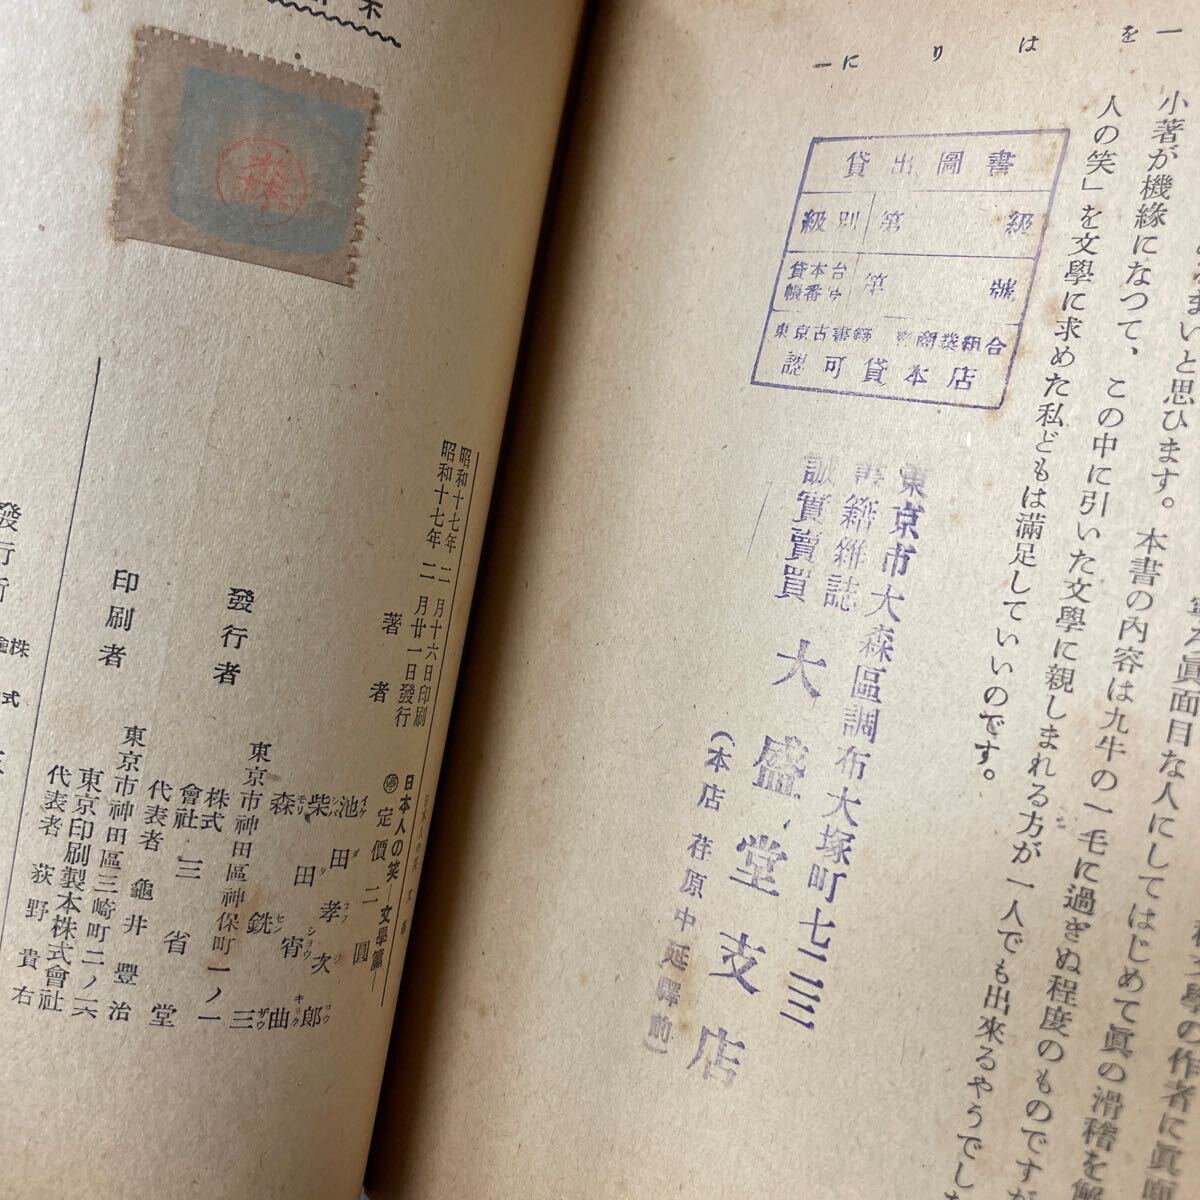 一 を は り に 一
小著が機緣になつて、この中に引いた文學に親しまれる方が一人でも出來るやうでした
人の笑」を文學に求めた私どもは滿足していいのです。
まいと思ひます。本書の內容は九牛の一毛に過ぎぬ程度のものですが
眞面目な人にしてはじめて眞の滑稽を解
學の作者に眞面
貸出圖書
級別 第 級
貸本台帳番号 第 號
東京古書籍 商業組合
認可貸本店
東京市大森區調布大塚町七三三
書籍雜誌
誠實賣買
大盛堂支店
(本店 荏原中延驛前)
大森
昭和十七年二月十六日印刷
昭和十七年二月廿一日發行
日本人の笑 文學篇
停 定價二圓
著者
池田孝次郎
イケ ダ コフ ジ ロウ
柴田宵曲
シバ タ ショウ キョク
森銑三
モリ セン ザウ
發行者
東京市神田區神保町一ノ一
株式會社 三省堂
代表者 龜井豐治
印刷者
東京市神田區三崎町二ノ六
東京印刷製本株式會社
代表者 荻野貴右
發行
株式